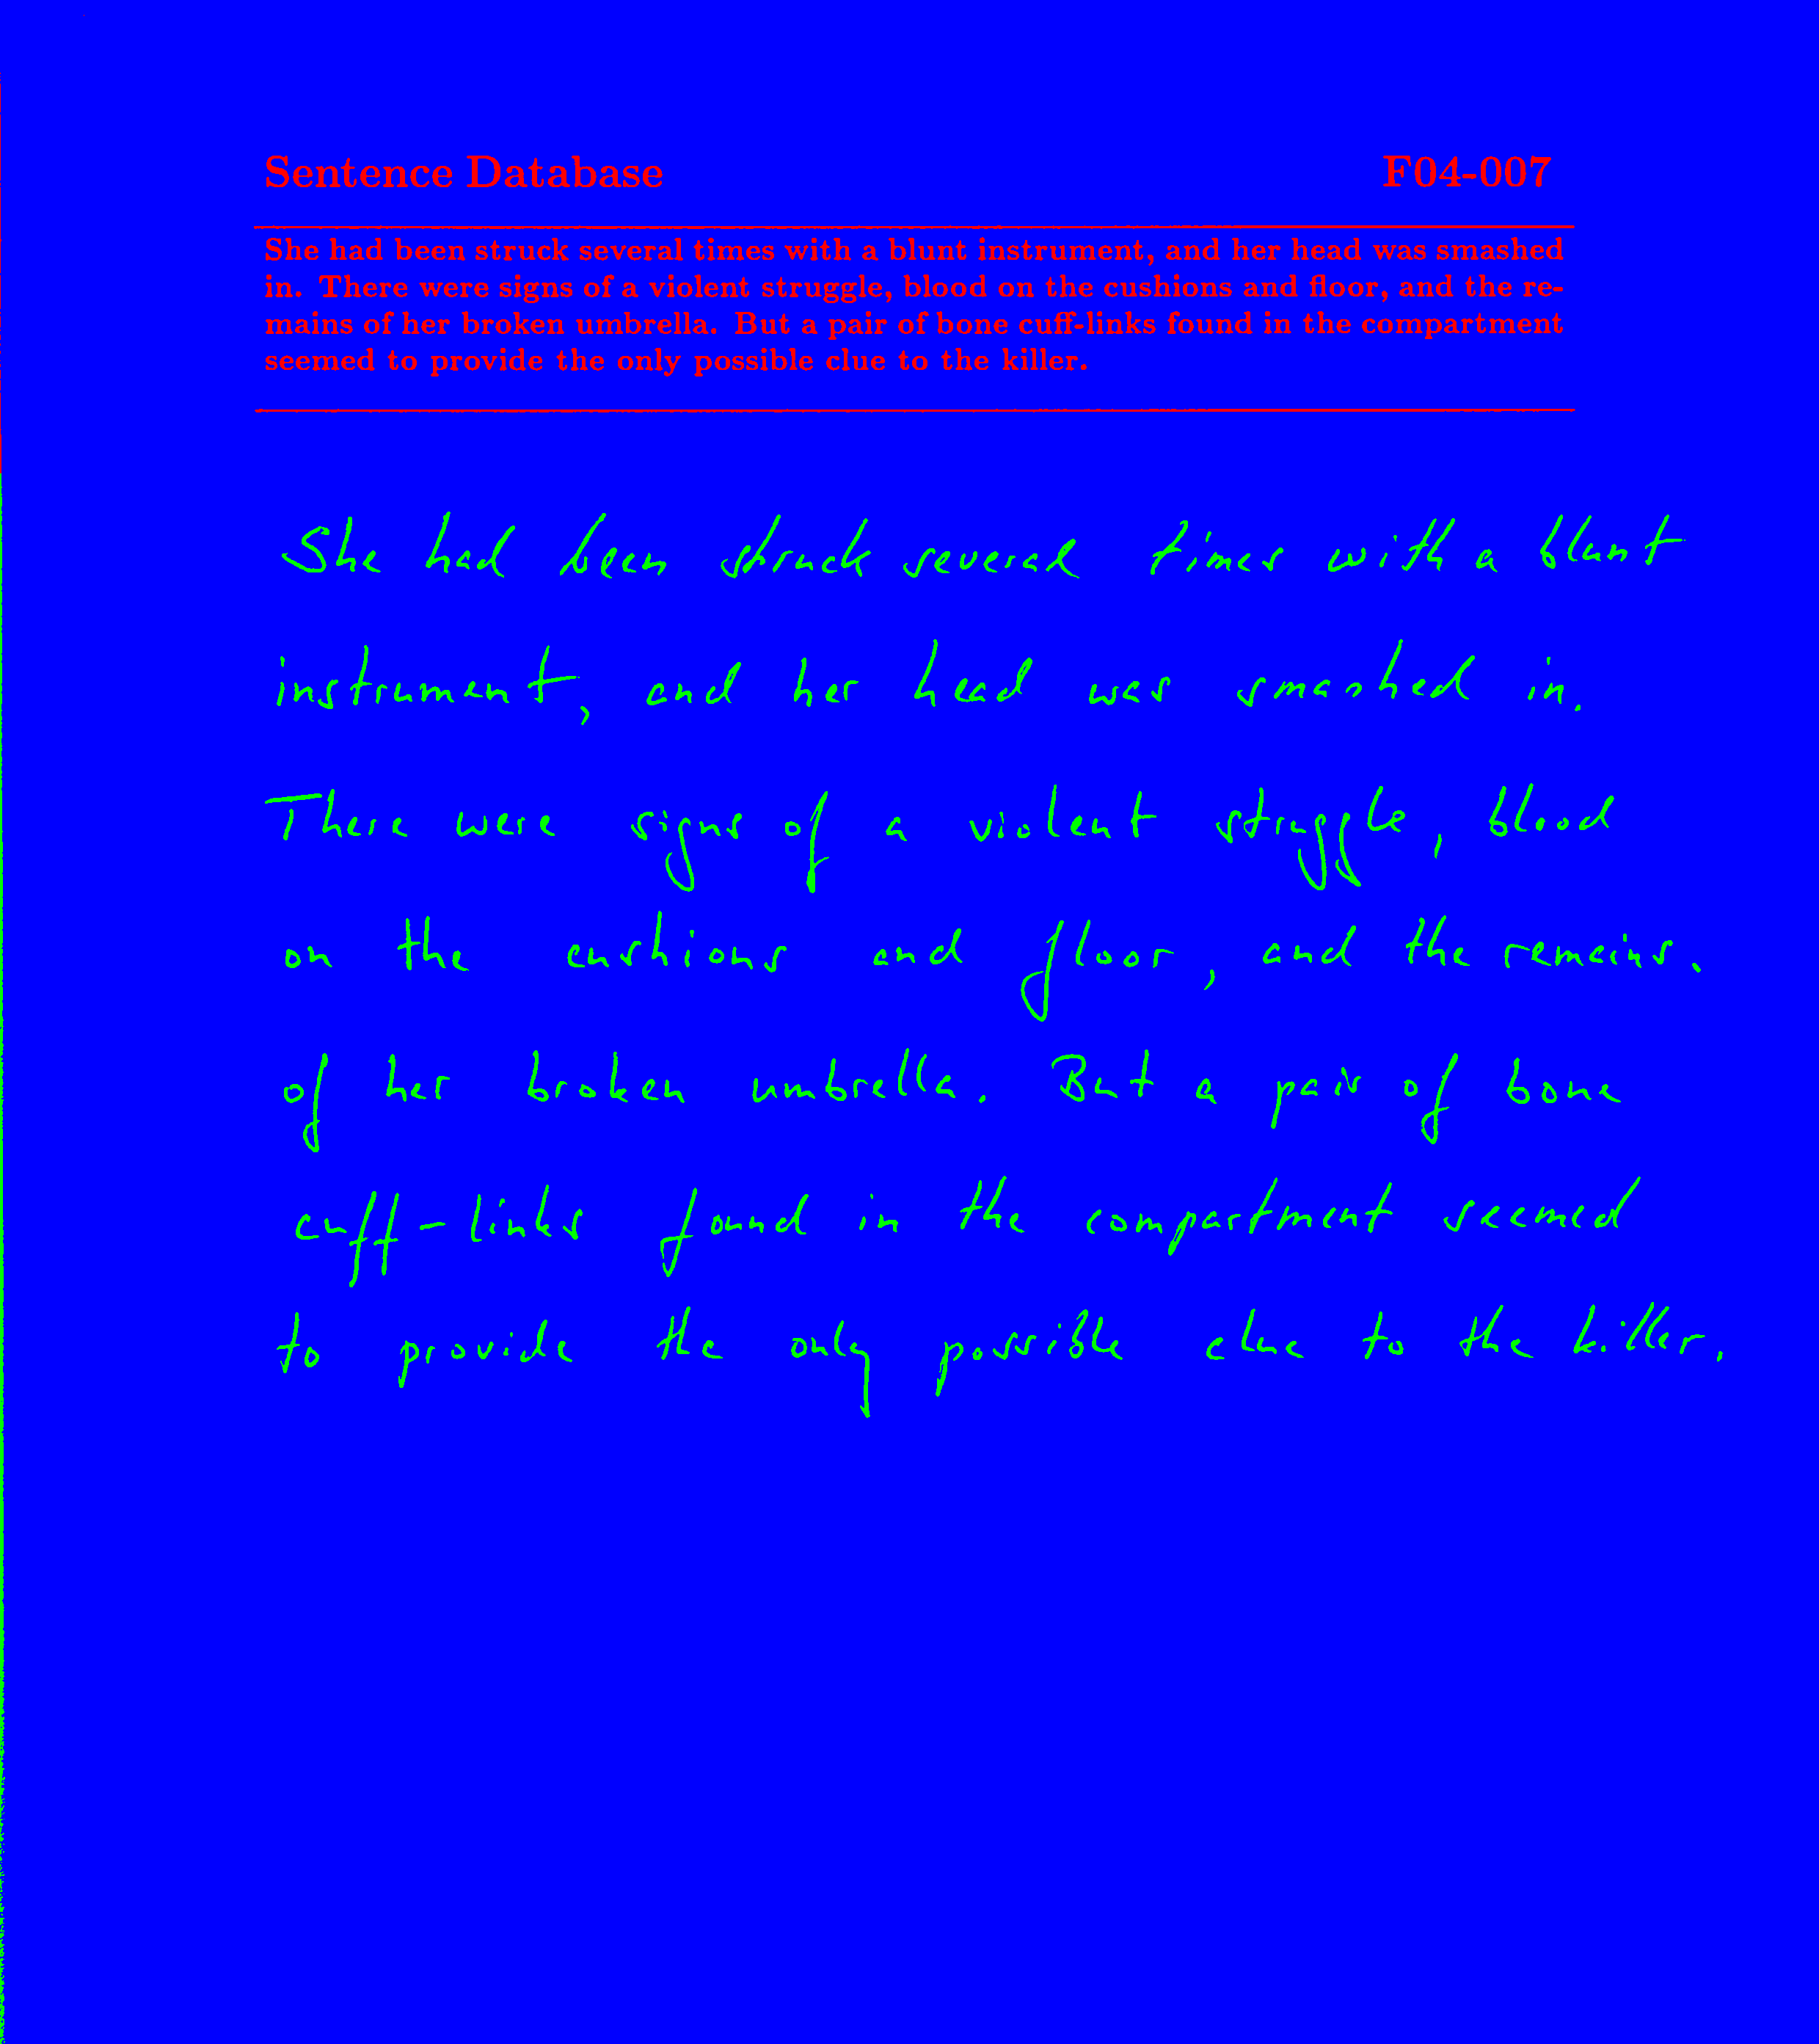 Sentence Database F04-007
She had been struck several times with a blunt instrument, and her head was smashed
in. There were signs of a violent struggle, blood on the cushions and floor, and the re-
mains of her broken umbrella. But a pair of bone cuff-links found in the compartment
seemed to provide the only possible clue to the killer.
She had been struck several times with a blunt
instrument, and her head was smashed in.
There were signs of a violent struggle, blood
on the cushions and floor, and the remains.
of her broken umbrella. But a pair of bone
cuff-links found in the compartment seemed
to provide the only possible clue to the killer.